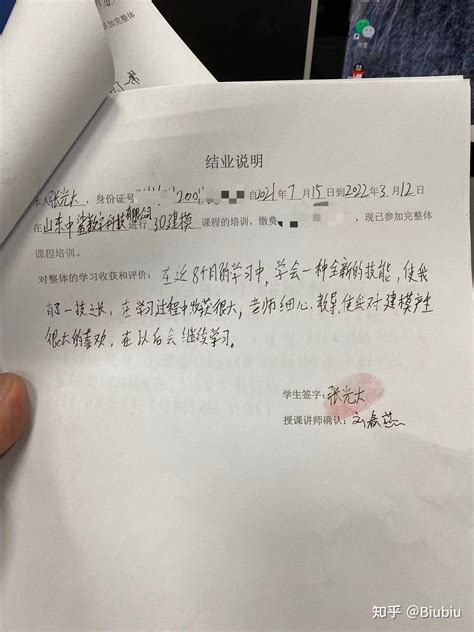 参加完整体
结业说明
本人张光大，身份证号 200 自2021年7月15日到2022年3月12日
在山东中鲨数字科技有限公司进行3D建模课程的培训，缴费，现已参加完整体
课程培训。
对整体的学习收获和评价：在近8个月的学习中，学会一种全新的技能，使我
有了一技之长，在学习过程中收获很大，老师细心教导，使我对建模产生
很大的喜欢，在以后会继续学习。
学生签字：张光大
授课讲师确认：刘
知乎 @Biubiu